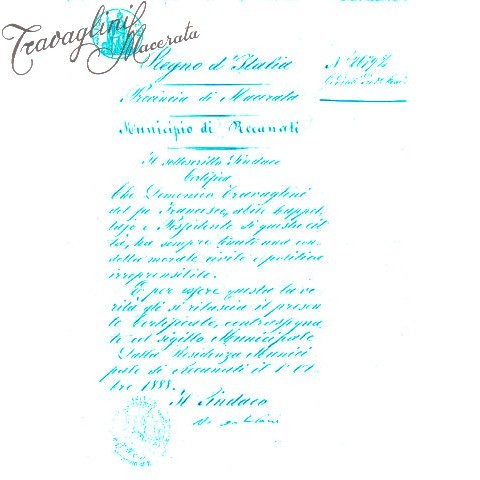 Travaglini
Macerata
Regno d'Italia
Provincia di Macerata
Municipio di Recanati
Il sottoscritto Sindaco
Certifica
Che Domenico Travaglini
del fu Francesco, abile
e Residente di questa cit
tà, ha sempre tenuto una con
dotta morale civile e politica
irreprensibile.
E per essere questa la ve
rità gli si rilascia il presen
te Certificato, contrassegna
to col sigillo Municipale
Dalla Residenza Munici
pale di Recanati il 1° Ot
bre 1888.
Il Sindaco